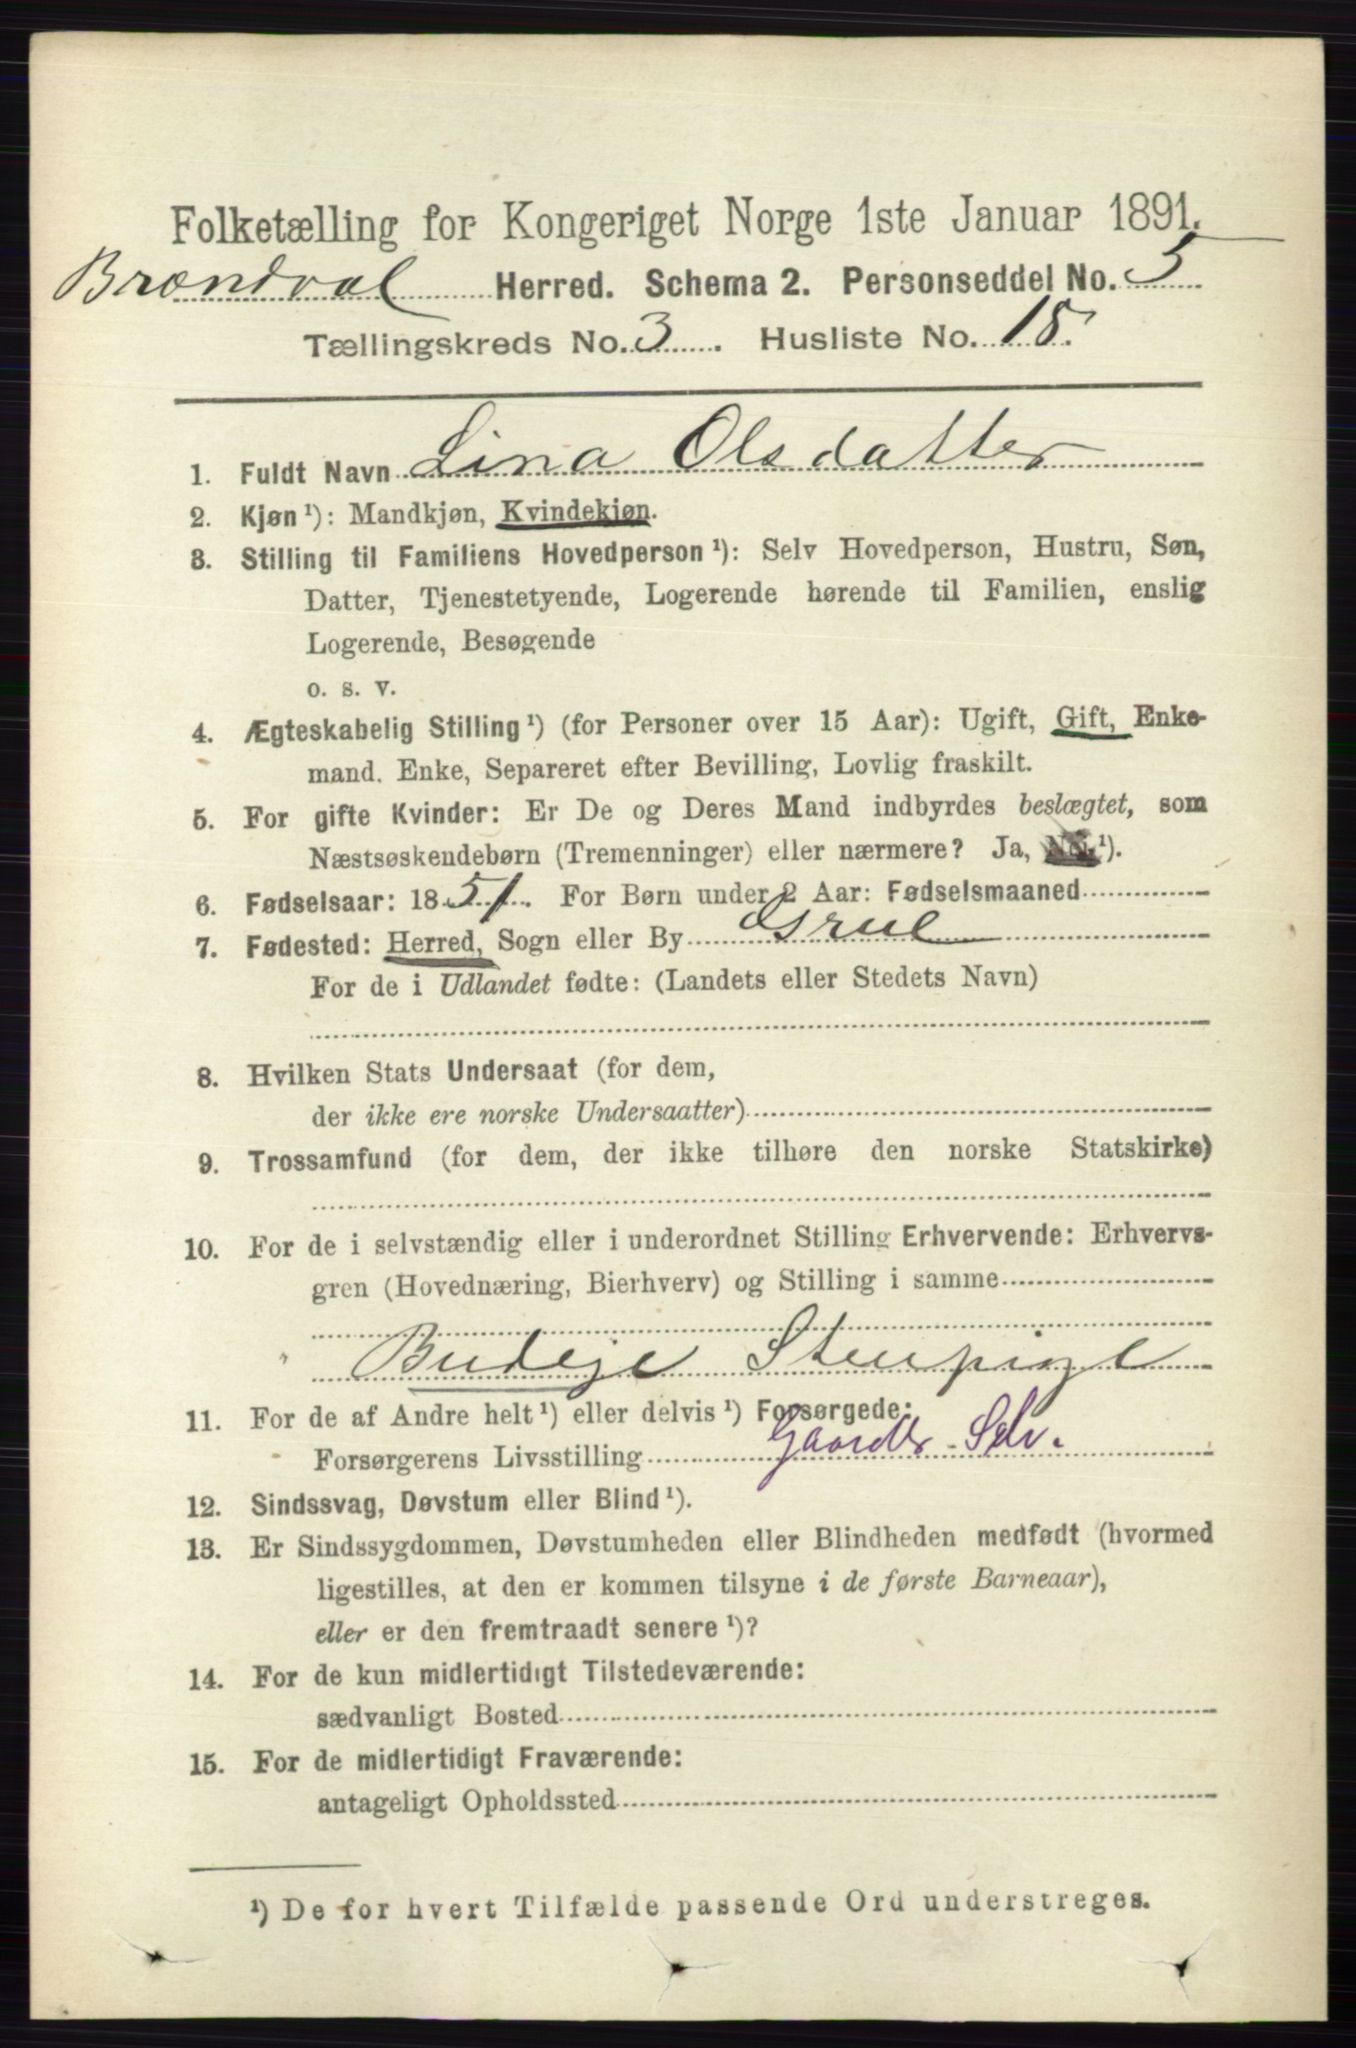 Folketælling for Kongeriget Norge 1ste Januar 1891.
Brandval Herred. Schema 2. Personseddel No. 5
Tællingskreds No. 3. Husliste No. 18.
1. Fuldt Navn Lina Olsdatter
2. Kjøn ¹): Mandkjøn, Kvindekjøn.
3. Stilling til Familiens Hovedperson ¹): Selv Hovedperson, Hustru, Søn,
Datter, Tjenestetyende, Logerende hørende til Familien, enslig
Logerende, Besøgende
o. s. v.
4. Ægteskabelig Stilling ¹) (for Personer over 15 Aar): Ugift, Gift, Enke-
mand. Enke, Separeret efter Bevilling, Lovlig fraskilt.
5. For gifte Kvinder: Er De og Deres Mand indbyrdes beslægtet, som
Næstsøskendebørn (Tremenninger) eller nærmere? Ja, Nei, ¹).
6. Fødselsaar: 1851. For Børn under 2 Aar: Fødselsmaaned
7. Fødested: Herred, Sogn eller By Grue
For de i Udlandet fødte: (Landets eller Stedets Navn)
8. Hvilken Stats Undersaat (for dem,
der ikke ere norske Undersaatter)
9. Trossamfund (for dem, der ikke tilhøre den norske Statskirke)
10. For de i selvstændig eller i underordnet Stilling Erhvervende: Erhvervs-
gren (Hovednæring, Bierhverv) og Stilling i samme
Budeje
11. For de af Andre helt ¹) eller delvis ¹) Forsørgede:
Forsørgerens Livsstilling Selv.
12. Sindssvag, Døvstum eller Blind ¹).
13. Er Sindssygdommen, Døvstumheden eller Blindheden medfødt (hvormed
ligestilles, at den er kommen tilsyne i de første Barneaar),
eller er den fremtraadt senere ¹)?
14. For de kun midlertidigt Tilstedeværende:
sædvanligt Bosted
15. For de midlertidigt Fraværende:
antageligt Opholdssted
¹) De for hvert Tilfælde passende Ord understreges.